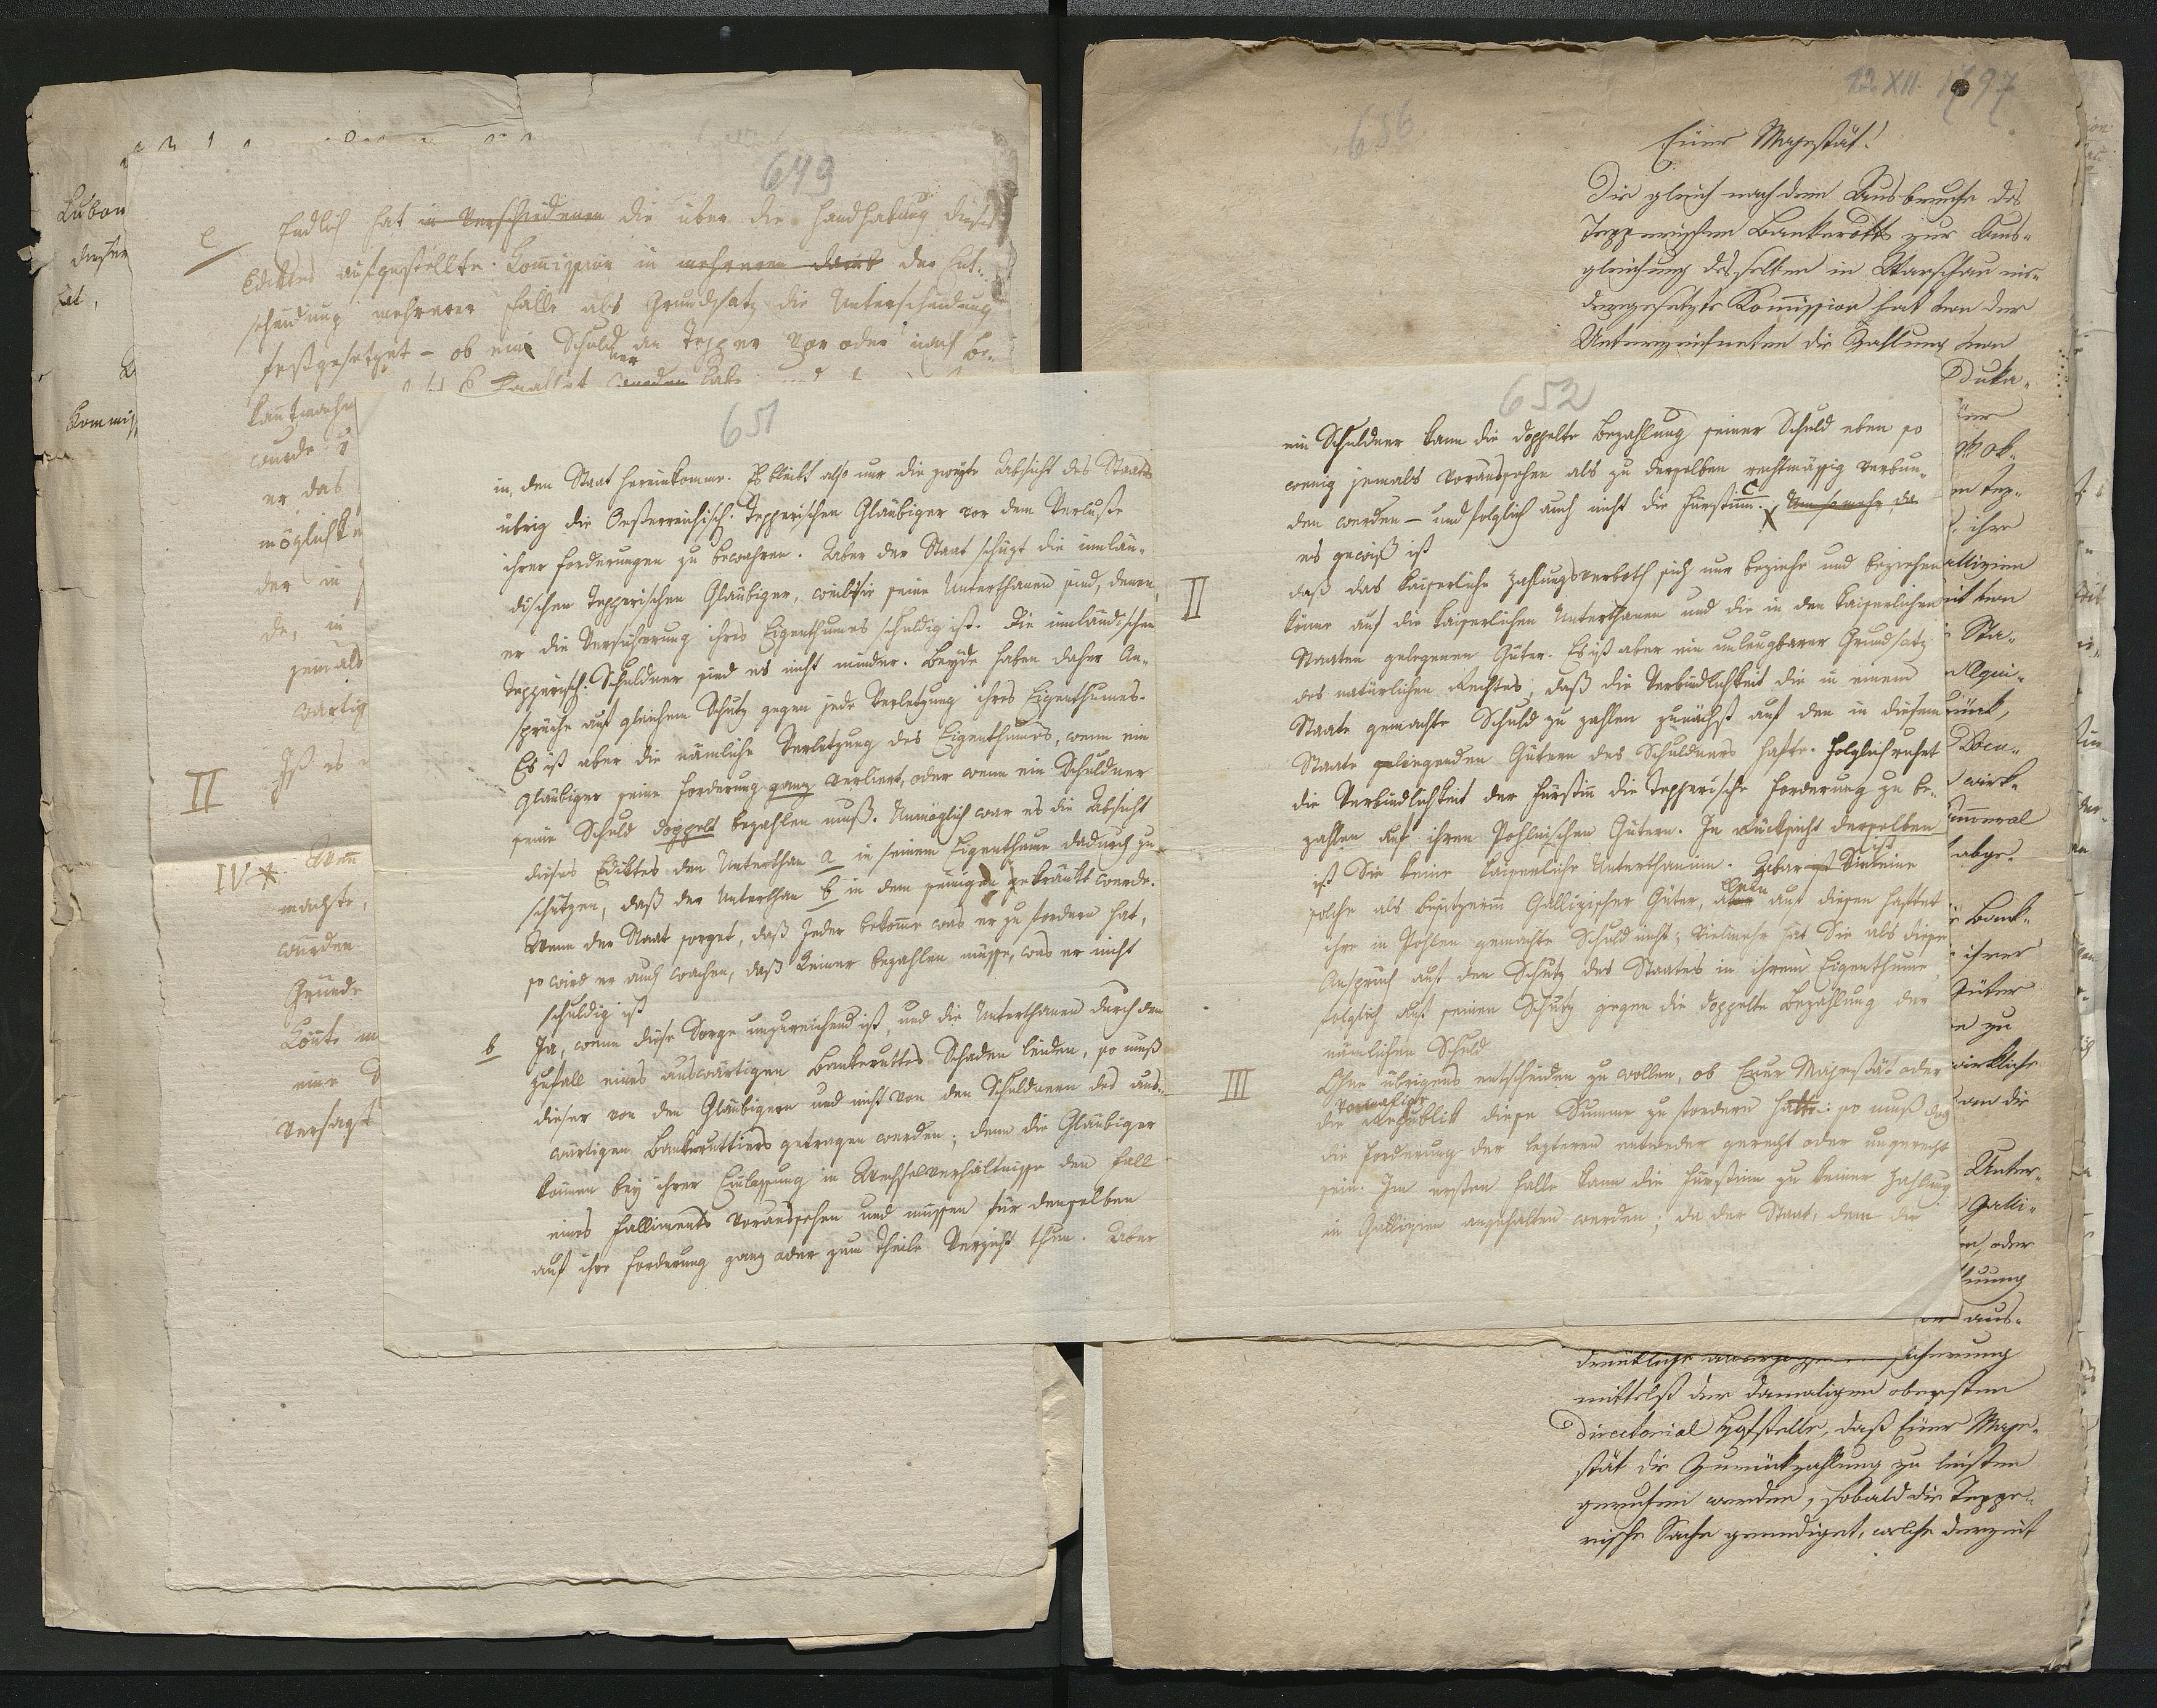 649
Lubom
dieser
hat,
Kommis,
e Endlich hat in Verschiedenen die über die Handhabung dieses
Ediktes aufgestellte Kommission in mehreren damit der Ent-
scheidung mehrerer Fälle als Grundsatz die Unterscheidung
festgesetzt – ob ein Schuldner an Tepper vor oder nach Be-
kanntmach
wurde
er das
möglichk
der in
de, in
jemals
wärtig
II Ist es
IV * Wenn
machte,
würden
Gründe
könnte
eine
versagt
651
in den Staat hereinkomme. Es bleibt also nur die zweyte Absicht des Staats
übrig die Oesterreichisch. Tepperischen Gläubiger vor dem Verluste
ihrer Forderungen zu bewahren. Aber der Staat schüzt die innlän-
dischen Tepperischen Gläubiger, weil sie seine Unterthanen sind, denen
er die Versicherung ihres Eigenthumes schuldig ist. Die innländischen
Tepperisch. Schuldner sind es nicht minder. Beyde haben daher An-
sprüche auf gleichen Schutz gegen jede Verletzung ihres Eigenthumes.
Es ist aber die nämliche Verletzung des Eigenthumes, wenn ein
Gläubiger seine Forderung ganz verliert, oder wenn ein Schuldner
seine Schuld doppelt bezahlen muß. Unmöglich war es die Absicht
dieses Ediktes den Unterthan a in seinem Eigenthume dadurch zu
schützen, daß der Unterthan b in dem seinigen gekränkt werde.
Wenn der Staat sorget, daß Jeder bekomme was er zu fordern hat,
so wird er auch wachen, daß Keiner bezahlen müsse, was er nicht
schuldig ist
b Ja, wenn diese Sorge unzureichend ist, und die Unterthanen durch den
Zufall eines auswärtigen Bankeruttes Schaden leiden, so muß
dieser von den Gläubigern und nicht von den Schuldnern des aus-
wärtigen Bankruttiers getragen werden; denn die Gläubiger
können bey ihrer Einlassung in Wechselverhältnisse den Fall
eines Falliments voraussehen und müssen für denselben
auf ihre Forderung ganz oder zum Theile Verzicht thun. Aber
652
ein Schuldner kann die doppelte Bezahlung seiner Schuld eben so
wenig jemals voraussehen als zu derselben rechtmässig verbun-
den werden – und folglich auch nicht die Fürstinn. Um so mehr da
es gewiß ist
II daß das kaiserliche Zahlungsverboth sich nur beziehe und beziehen
könne auf die kaiserlichen Unterthanen und die in den kaiserlichen
Staaten gelegenen Güter. Es ist aber ein unleugbarer Grundsatz
des natürlichen Rechtes, daß die Verbindlichkeit die in einem
Staate gemachte Schuld zu zahlen zunächst auf den in diesem
Staate liegenden Gütern des Schuldners hafte. Folglich ruhet
die Verbindlichkeit der Fürstinn die Tepperische Forderung zu be-
zahlen auf ihren Pohlnischen Gütern. In Rücksicht derselben
ist Sie keine kaiserliche Unterthaninn. Zwar ist Sie eine
solche als Besitzerinn Gallizischer Güter, allein auf diesen haftet
ihre in Pohlen gemachte Schuld nicht; Vielmehr hat Sie als diese
Anspruch auf den Schutz des Staates in ihrem Eigenthume,
folglich auf seinen Schutz gegen die doppelte Bezahlung der
nämlichen Schuld
III Ohne übrigens entscheiden zu wollen, ob Eure Majestät oder
die vormalige Republik diese Summe zu fordern hatte: so muß doch
die Forderung der lezteren entweder gerecht oder ungerecht
sein. Im ersten Falle kann die Fürstinn zu keiner Zahlung
in Gallizien angehalten werden; da der Staat, dem die
656
12 XII. 1797
Euer Majestät!
Die gleich nach dem Ausbruche des
Tepperischen Bankerotts zur Aus-
gleichung desselben in Warschau nie-
dergesetzte Kommission hat von der
Unterzeichneten die Zahlung von
Duka-
ihre
allizien
Sta-
Docu-
wirk-
abge-
Bank-
ihrer
Güter
zu
wirkliche
an die
Unter-
Galli-
oder
aus-
drückliche
sicherung
mittelst der damaligen obersten
Directorial Hofstelle, daß Euer Maje-
stät die Zurückzahlung zu leisten
geruhen werden, sobald die Teppe-
rische Sache geendiget, welche derzeit